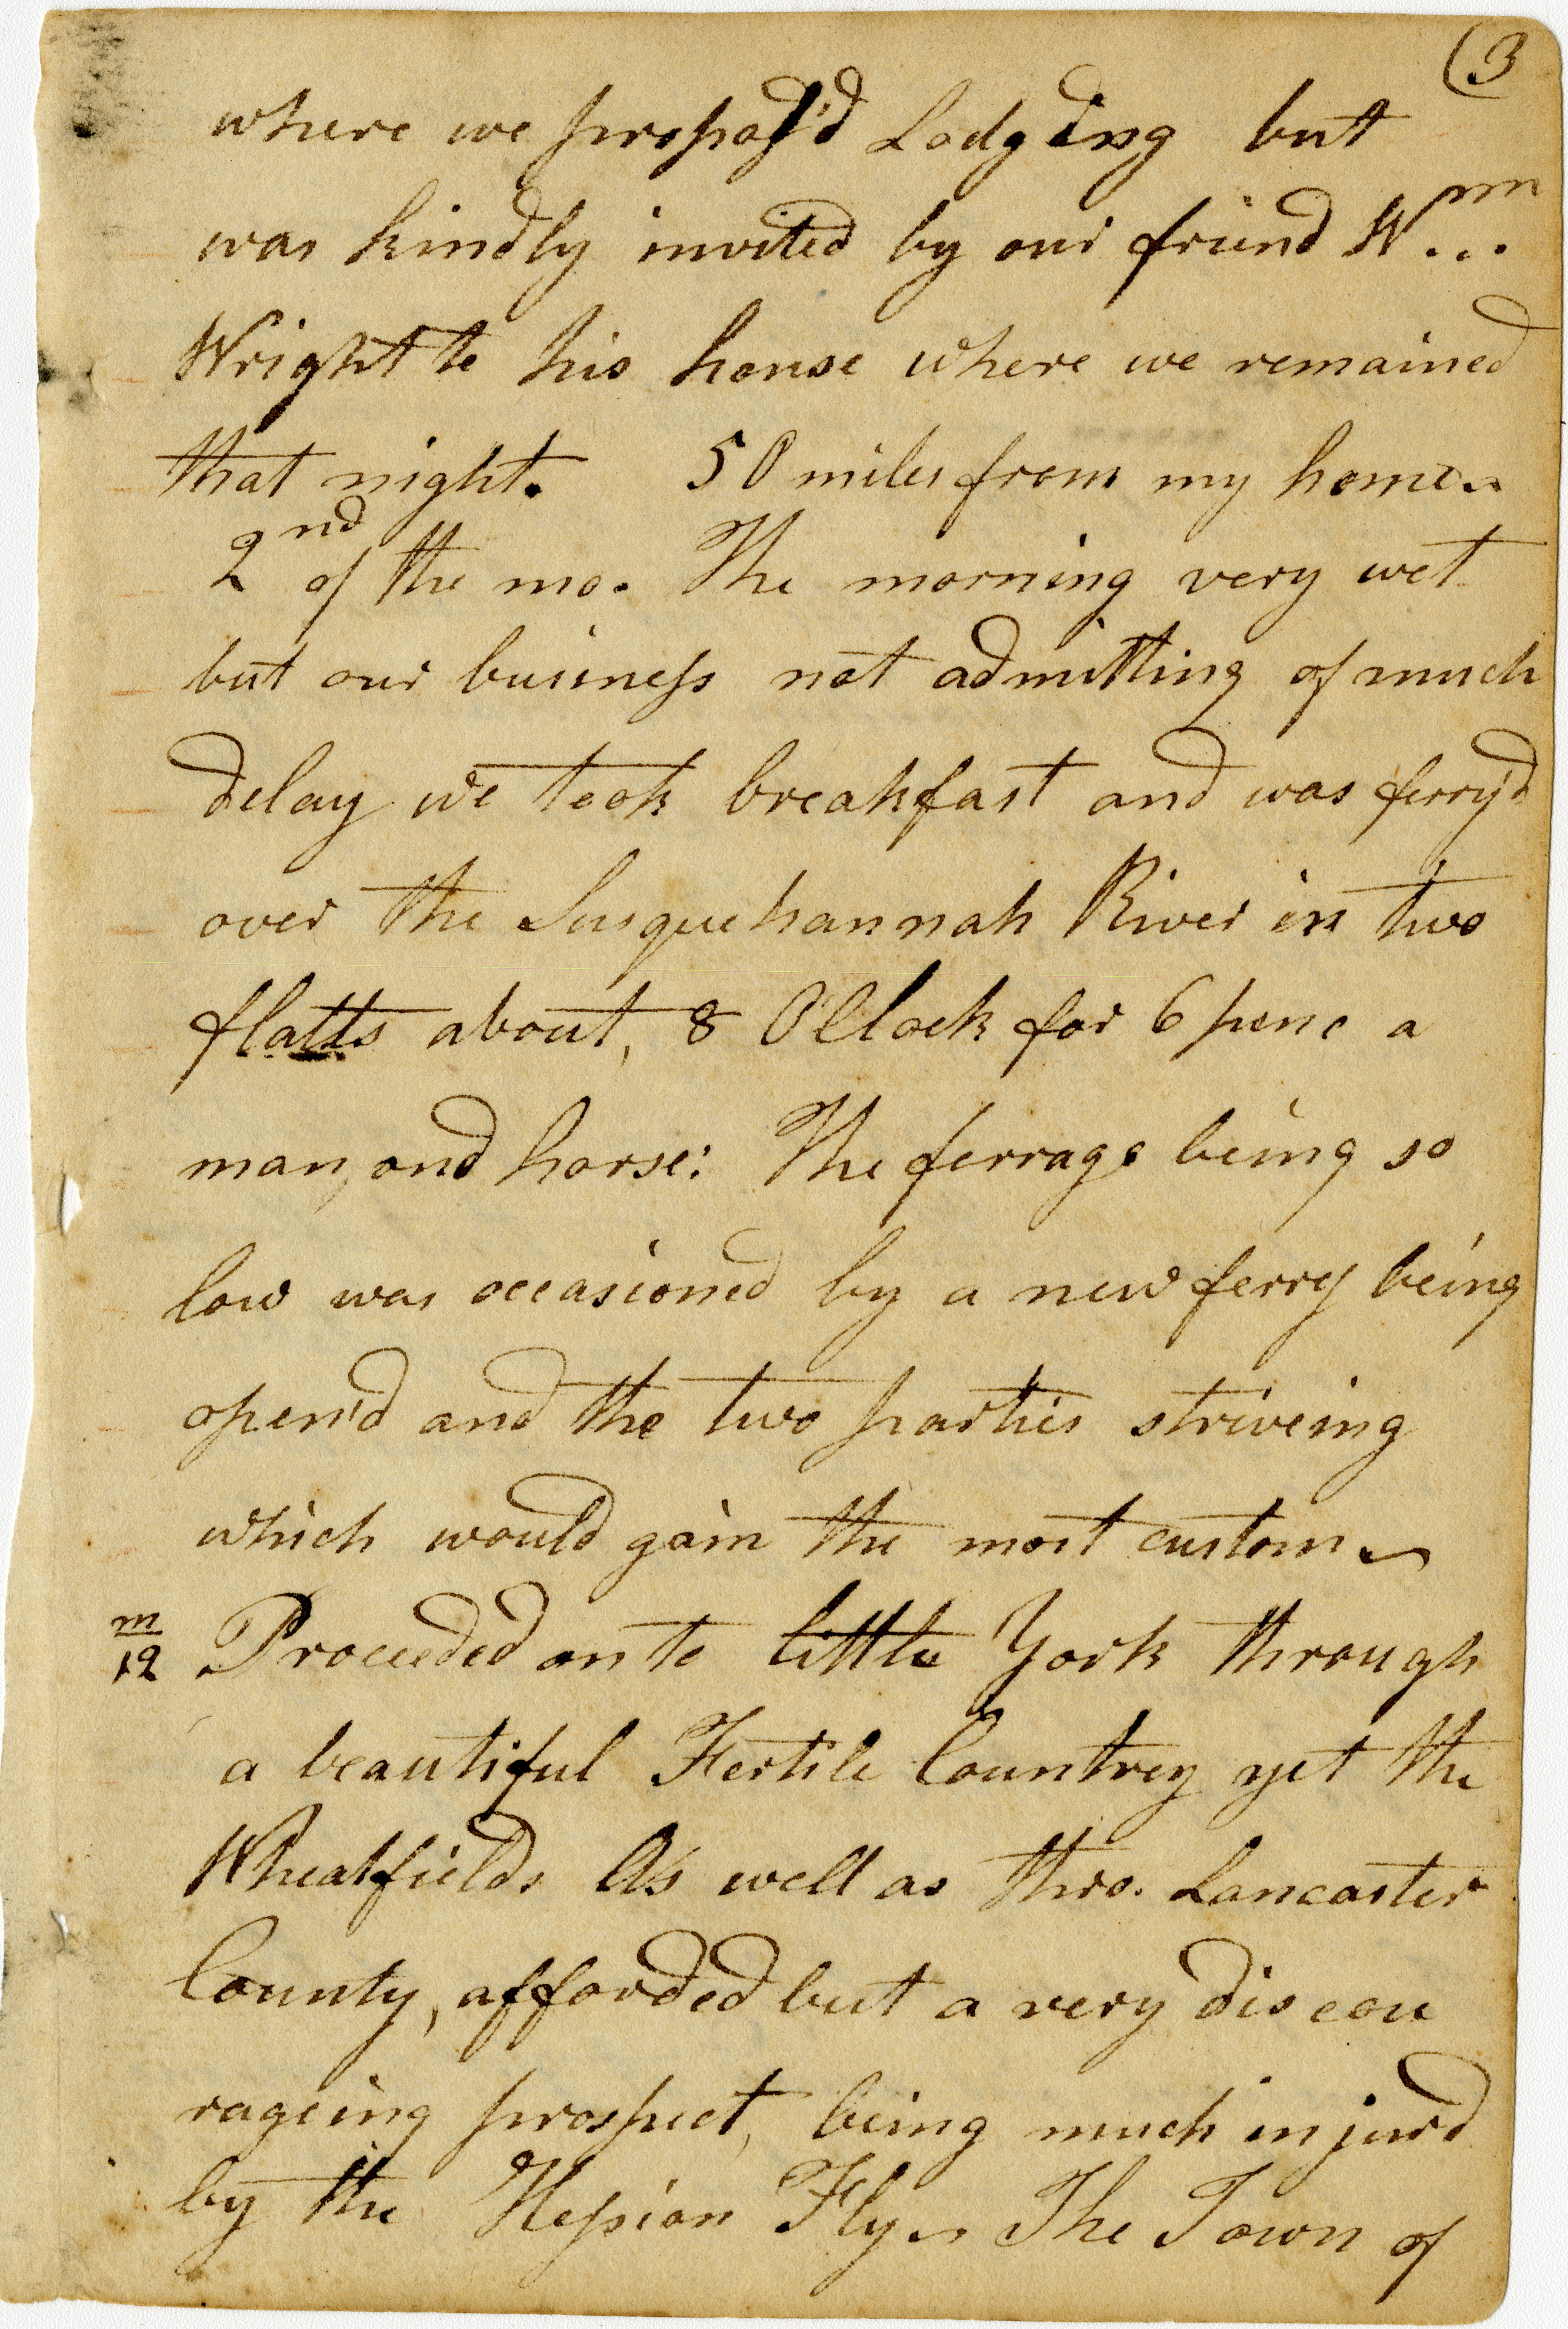 (3
where we propos'd Lodgeing but
was kindly invited by our friend Wm
Wright to his house where we remained
that night. 50 miles from my home
2nd of the mo. The morning very wet
but our business not admitting of much
delay we took breakfast and was ferry'd
over the Susquehannah River in two
flatts about, 8 O'Clock for 6 penc a
man, and horse: The ferrage being so
low was occasioned by a new ferry being
open'd and the two parties striveing
which would gain the most custom
m
12 Proceeded on to little York through
a beautiful Fertile Countrey yet the
Wheatfields As well as thro. Lancaster
County, afforded but a very discou
rageing prospect, being much injurd
by the Hessian Fly The Town of